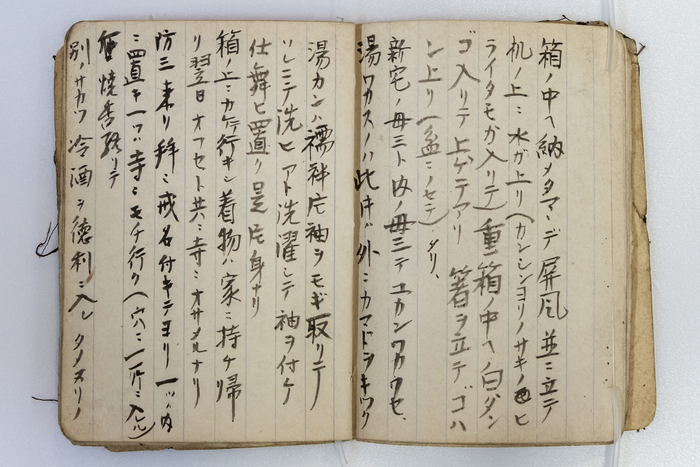 箱ノ中ヘ納メタマヽデ屏風並ニ立テ
机ノ上ニ水ガ上リ(カンシンヨリノサキノヒ
ライタモガ入リテ)重箱ノ中ヘ白ダン
ゴ入リテ上ゲテアリ 箸ヲ立テゴハ
ン上リ(盆ニノセテ)タリ、
新宅ノ母ミト内ノ母ミテユカンワカウセ、
湯ワカスノハ此ハ外ニカマドヲキツク
湯カンハ襦袢片袖ヲモギ取リテ
ソレニテ洗ヒアト洗濯シテ袖ヲ付ケ
仕舞ヒ置ク是片身ナリ
箱ノ上ニカケテ行キシ着物ハ家ニ持チ帰
リ翌日オフセト共ニ寺ニオサメルナリ
防三来リ拝ミ戒名付キテヨリ一ツハ内
ニ置キ一ツハ寺ニモチ行ク(穴ニ一所ニ入ル)
焼香終リテ
別ノサカツ冷酒ヲ徳利ニ入レ